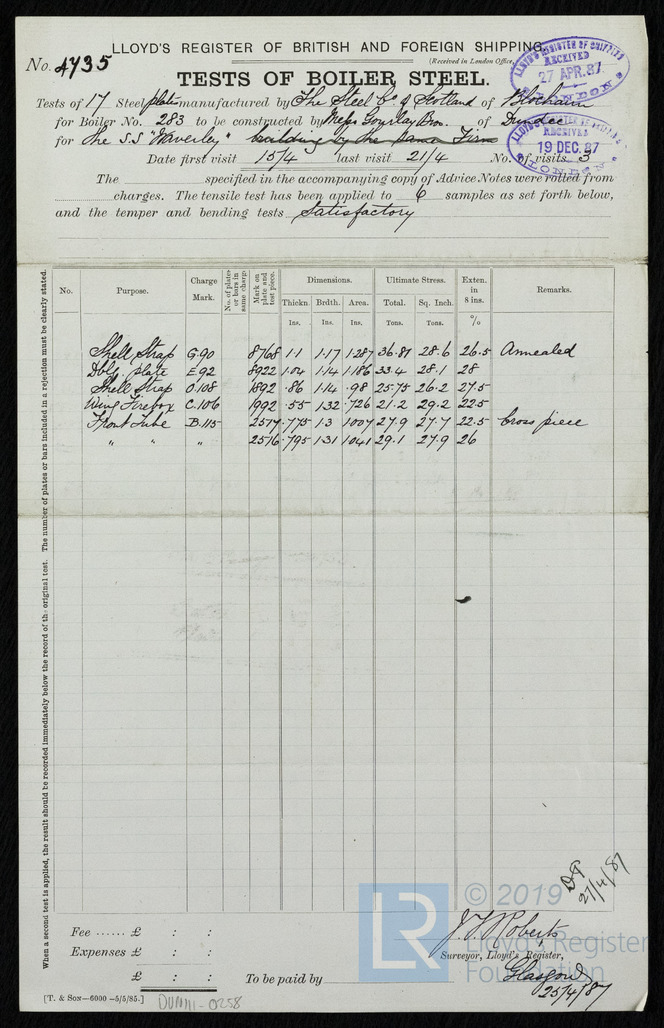 LLOYD'S REGISTER OF BRITISH AND FOREIGN SHIPPING.
No. 4735
(Received in London Office,
LLOYD'S REGISTER OF SHIPPING
RECEIVED
27 APR. 87
LONDON
TESTS OF BOILER STEEL.
Tests of 17 Steel plates manufactured by The Steel Co of Scotland of Blochairn
for Boiler No. 283 to be constructed by Messrs Gourlay Bros. of Dundee
for the S.S "Waverley" building by the same Firm
RECEIVED
19 DEC. 87
LONDON
Date first visit 15/4 last visit 21/4 No. of visits 3
The specified in the accompanying copy of Advice Notes were rolled from
charges. The tensile test has been applied to 6 samples as set forth below,
and the temper and bending tests Satisfactory
When a second test is applied, the result should be recorded immediately below the record of the original test. The number of plates or bars included in a rejection must be clearly stated.
No. Purpose. Charge Mark. No. of plates or bars in same charge Mark on plate and test piece. Dimensions. Ultimate Stress. Exten. in 8 ins. Remarks.
Thickn. Brdth. Area. Total. Sq. Inch.
Ins. Ins. Ins. Tons. Tons. %
Shell Strap G.90 8768 1.1 1.17 1.287 36.87 28.6 26.5 Annealed
Dblg. plate E.92 8922 1.04 1.14 1.186 33.4 28.1 28
Shell Strap O.108 1892 .86 1.14 .98 25.75 26.2 27.5
Wing Firebox C.106 1992 .55 1.32 .726 21.2 29.2 22.5
Front Tube B.115 2517 .775 1.3 1.007 27.9 27.7 22.5 Cross piece
" " " 2516 .795 1.31 1.041 29.1 27.9 26
27/4/87
© 2019
LR
Lloyd's Register
Foundation
Fee ...... £ : :
Expenses £ : :
£ : :
J. T. Roberts
Surveyor, Lloyd's Register,
To be paid by
Glasgow
25/4/87
[T. & SON—6000 -5/5/85.]
DUN111-0258